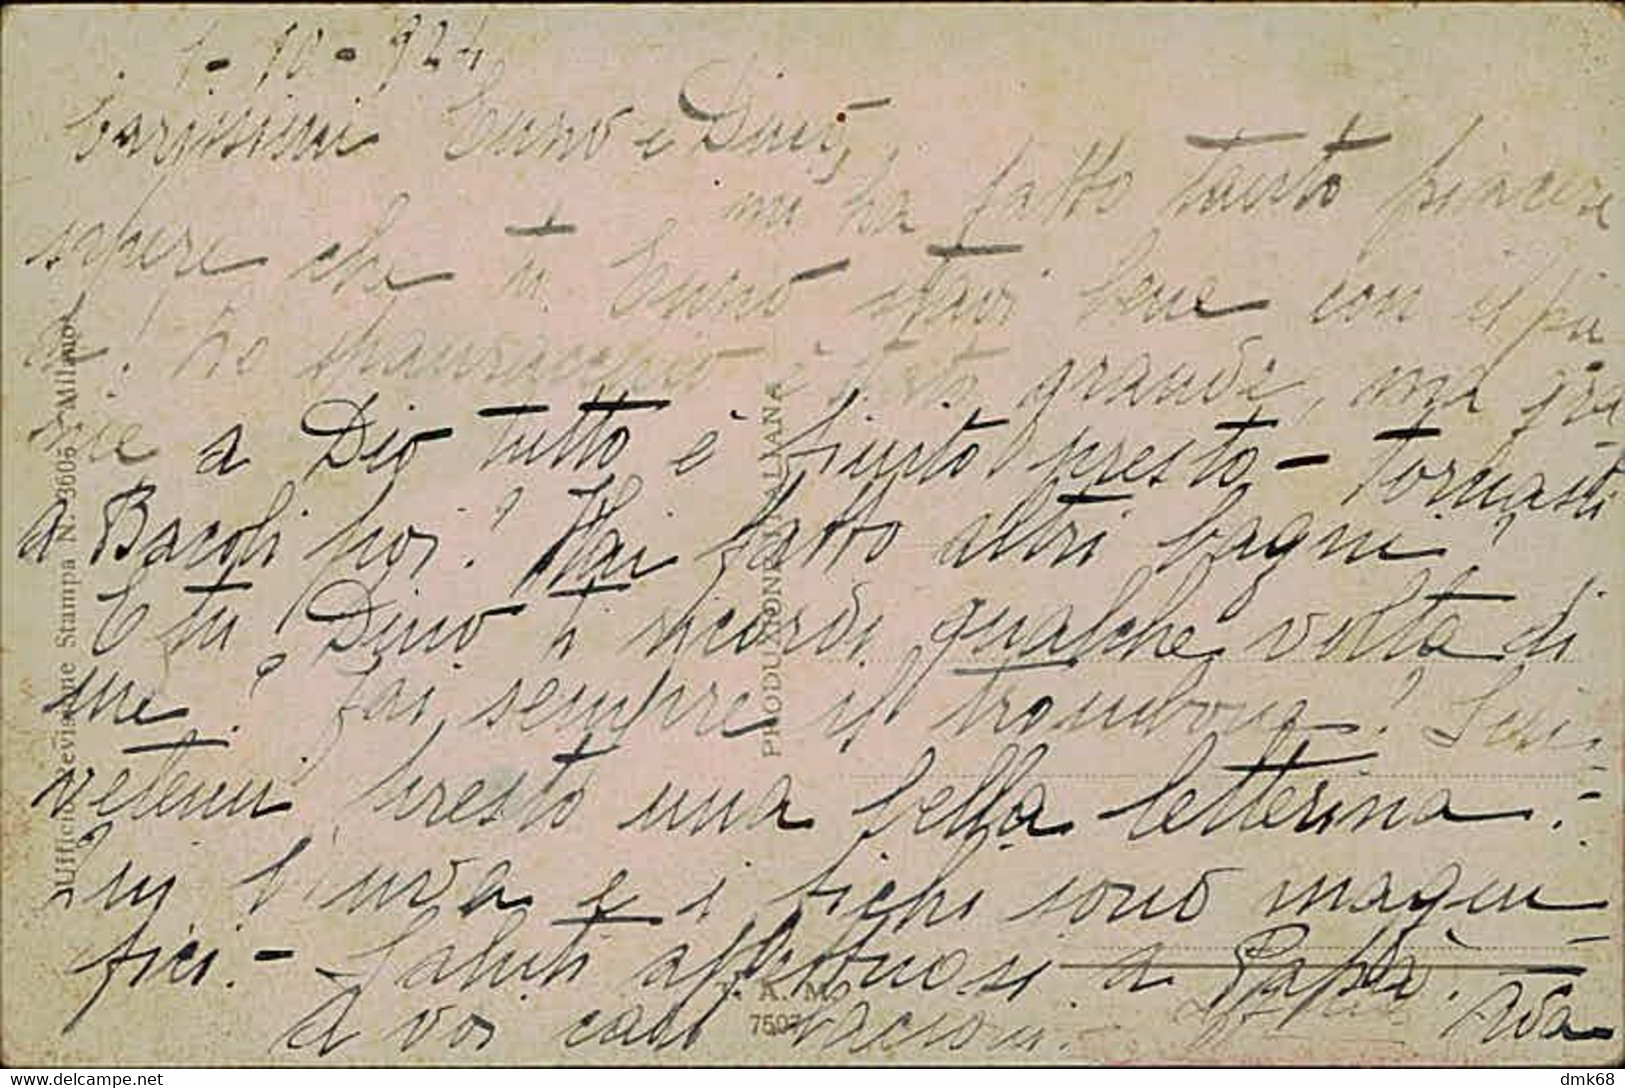 1-10-924
Carissimi Enno e Dino,
mi ha fatto tanto piacere
sapere che tu Enno stavi bene con il pie
de! Lo è stata grande, ma gra
zie a Dio tutto è finito presto - Tornasti
a Bacoli poi? Hai fatto altri bagni?
E tu Dino ti ricordi qualche volta di
me? Fai sempre il trombone? Scri
vetemi presto una bella letterina.-
Qui l'uva e i fichi sono magni
fici.- Saluti affettuosi a Papà.
A voi cari bacioni. Ada
Ufficio Revisione Stampa N. 3606 Milano
PRODUZIONE ITALIANA
7597
dmk68